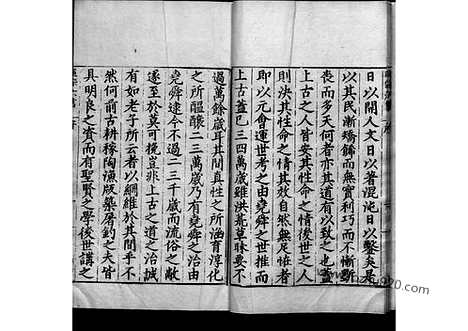 日以開人文日以著混沌日以鑿矣是
以其民漸矯飾而無實利巧而不慚斲
喪而多天何者亦其道有以致之也蓋
上古之人皆安其性命之情後世之人
則決其性命之情其效自然無足怪者
即以元會運世考之由堯舜之世推而
上古蓋已三四萬歲雖洪荒莫昧要不
過萬餘歲耳其間真性之所涵育淳化
之所醞釀二三萬歲乃有堯舜之治由
堯舜逮今不過二三千歲而流俗之敝
遂至於莫可挽豈非上古之道之治誠
有如老子所云者以綱維於其間乎不
然何前古耕稼陶漁版築屠釣之夫皆
具明良之資而有聖賢之學後世講之